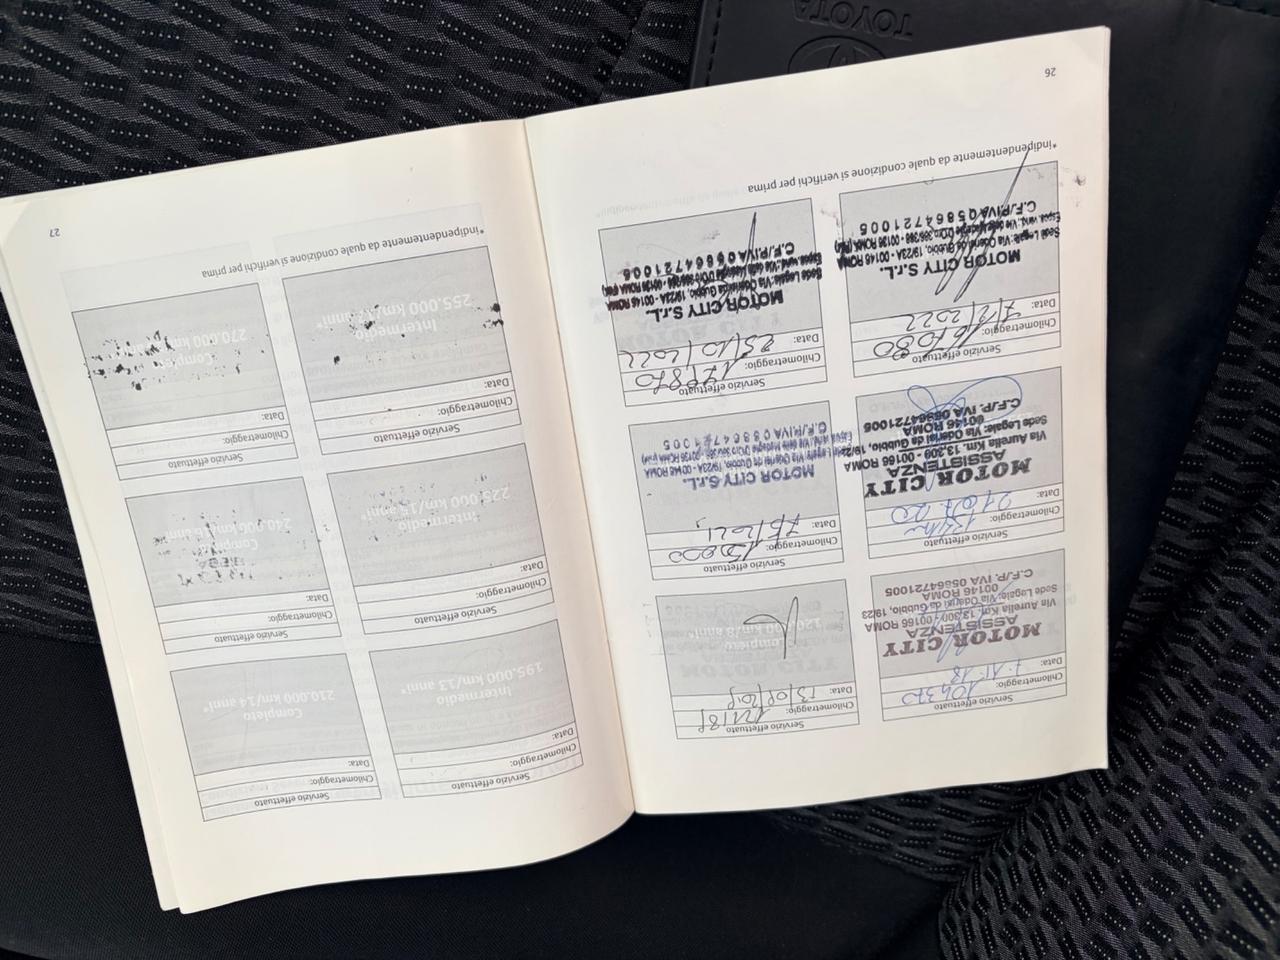 TOYOTA
26
Servizio effettuato
Chilometraggio: 104370
Data: 7.11.18
MOTOR CITY
ASSISTENZA
Via Aurelia Km. 13,300 00166 ROMA
Sede Legale: Via Oderisi da Gubbio, 19/23
00146 ROMA
C.F./P. IVA 05864721005
Servizio effettuato
Chilometraggio:
Data:
Completo
120.000 km/8 anni*
Servizio effettuato
Chilometraggio:
Data:
MOTOR CITY
ASSISTENZA
Via Aurelia 13,309 Km. - 00166 ROMA
Sede Legale: Via Oderisi da Gubbio, 19/23A
00146 ROMA
C.F./P. IVA 05864721005
Servizio effettuato
Chilometraggio:
Data:
MOTOR CITY S.r.L.
C.F./P.IVA 05864721005
Servizio effettuato
Chilometraggio: 167080
Data:
MOTOR CITY S.r.L.
Sede Legale: Via Oderisi da Gubbio, 19/23A - 00146 ROMA
C.F./P.IVA 05864721005
Servizio effettuato
Chilometraggio: 179870
Data: 25/10/2022
MOTOR CITY S.r.L.
Sede Legale: Via Oderisi da Gubbio, 19/23A - 00146 ROMA
C.F./P.IVA 05864721005
*indipendentemente da quale condizione si verifichi per prima
27
Servizio effettuato
Chilometraggio:
Data:
Intermedio
195.000 km/13 anni*
Servizio effettuato
Chilometraggio:
Data:
Completo
210.000 km/14 anni*
Servizio effettuato
Chilometraggio:
Data:
Intermedio
225.000 km/15 anni*
Servizio effettuato
Chilometraggio:
Data:
Completo
240.000 km/16 anni*
Servizio effettuato
Chilometraggio:
Data:
Intermedio
255.000 km/17 anni*
Servizio effettuato
Chilometraggio:
Data:
Completo
270.000 km/
*indipendentemente da quale condizione si verifichi per prima